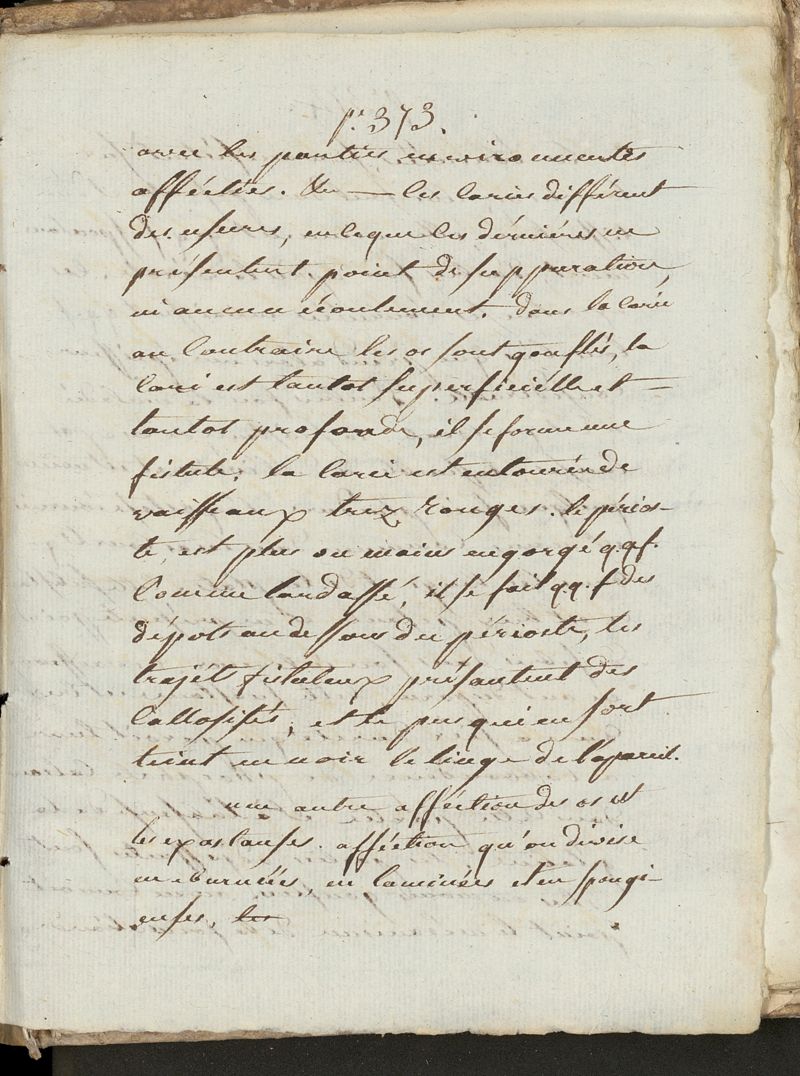 p. 373.
avec les parties environnentes
affectées. — les caries différent
des usures, en ce que les dérnières ne
présentent point de suppuration,
ni aucun écoulement. dans la carie
au contraire les os sont gonflés, la
carie est tantot superficièlle et —
tantot profonde, il se forme une
fistule. la carie est entourée de
vaisseaux trez rouges. le périos-
te, est plus ou moins engorgé q.q.f.
comme lardassé, il se fait q.q.f. des
dépots au dessous du périoste, les
trajét fistuleux présentent des
callosités, et le pus qui en sort
teint en noir le linge de l'apareil.
une autre afféction des os est
les exostauses. afféction qu'on divise
en éburnées, en laminées et en spongi-
euses, les